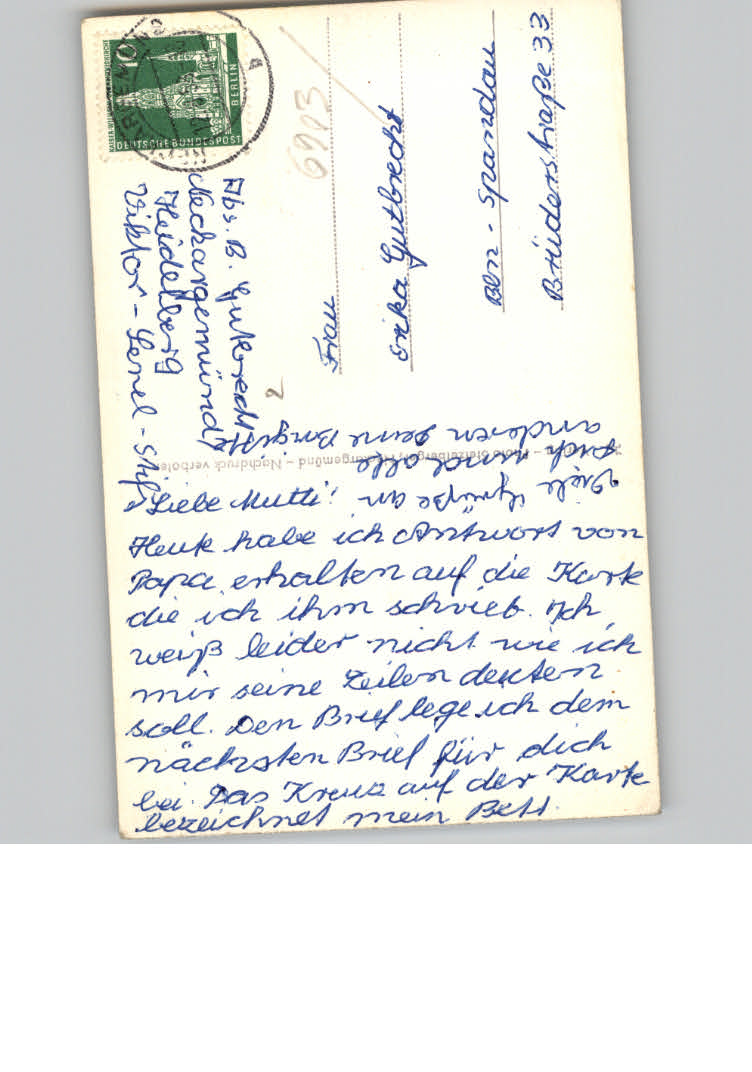 Liebe Mutti!
Heute habe ich Antwort von
Papa erhalten auf die Karte
die ich ihm schrieb. Ich
weiß leider nicht wie ich
mir seine Zeilen deuten
soll. Den Brief lege ich dem
nächsten Brief für dich
bei. Das Kreuz auf der Karte
bezeichnet mein Bett.
Viele Grüße an
dich und alle
anderen Deine Borgitt
Abs. B. Gutbrecht
Neckargemünd,
Heidelberg
Viktor-Lenel-Stift
Frau
Erika Gutbrecht
Bln-Spandau
Brüderstraße 33
6993
2
10
BERLIN
DEUTSCHE BUNDESPOST
Neckargemünd – Nachdruck verboten